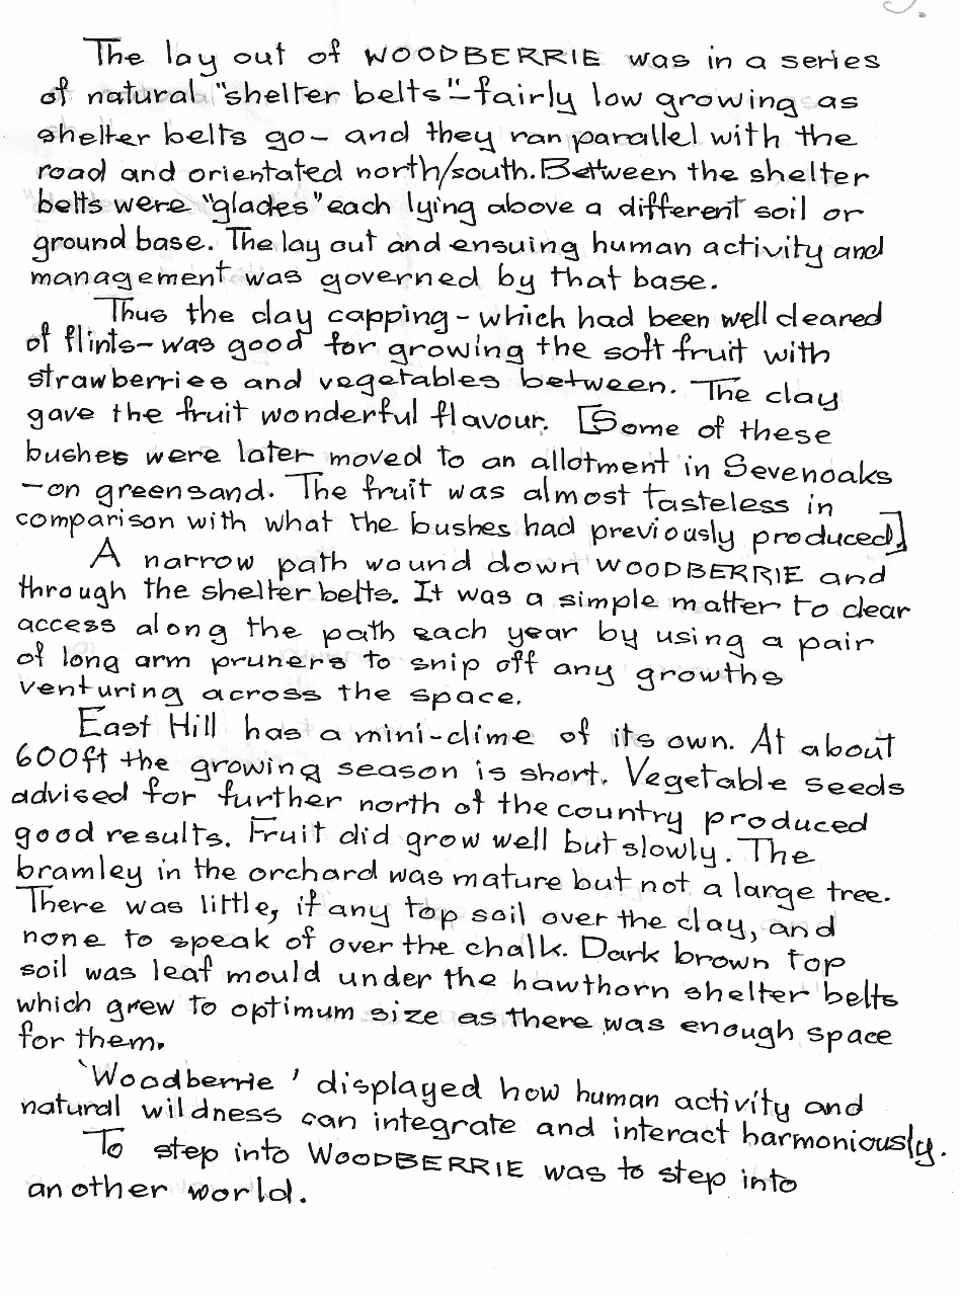 The lay out of WOODBERRIE was in a series
of natural "shelter belts" - fairly low growing as
shelter belts go - and they ran parallel with the
road and orientated north/south. Between the shelter
belts were "glades" each lying above a different soil or
ground base. The lay out and ensuing human activity and
management was governed by that base.
Thus the clay capping - which had been well cleared
of flints - was good for growing the soft fruit with
strawberries and vegetables between. The clay
gave the fruit wonderful flavour. [Some of these
bushes were later moved to an allotment in Sevenoaks
- on greensand. The fruit was almost tasteless in
comparison with what the bushes had previously produced]
A narrow path wound down WOODBERRIE and
through the shelter belts. It was a simple matter to clear
access along the path each year by using a pair
of long arm pruners to snip off any growths
venturing across the space.
East Hill has a mini-clime of its own. At about
600ft the growing season is short. Vegetable seeds
advised for further north of the country produced
good results. Fruit did grow well but slowly. The
bramley in the orchard was mature but not a large tree.
There was little, if any top soil over the clay, and
none to speak of over the chalk. Dark brown top
soil was leaf mould under the hawthorn shelter belts
which grew to optimum size as there was enough space
for them.
'Woodberrie' displayed how human activity and
natural wildness can integrate and interact harmoniously.
To step into WOODBERRIE was to step into
another world.